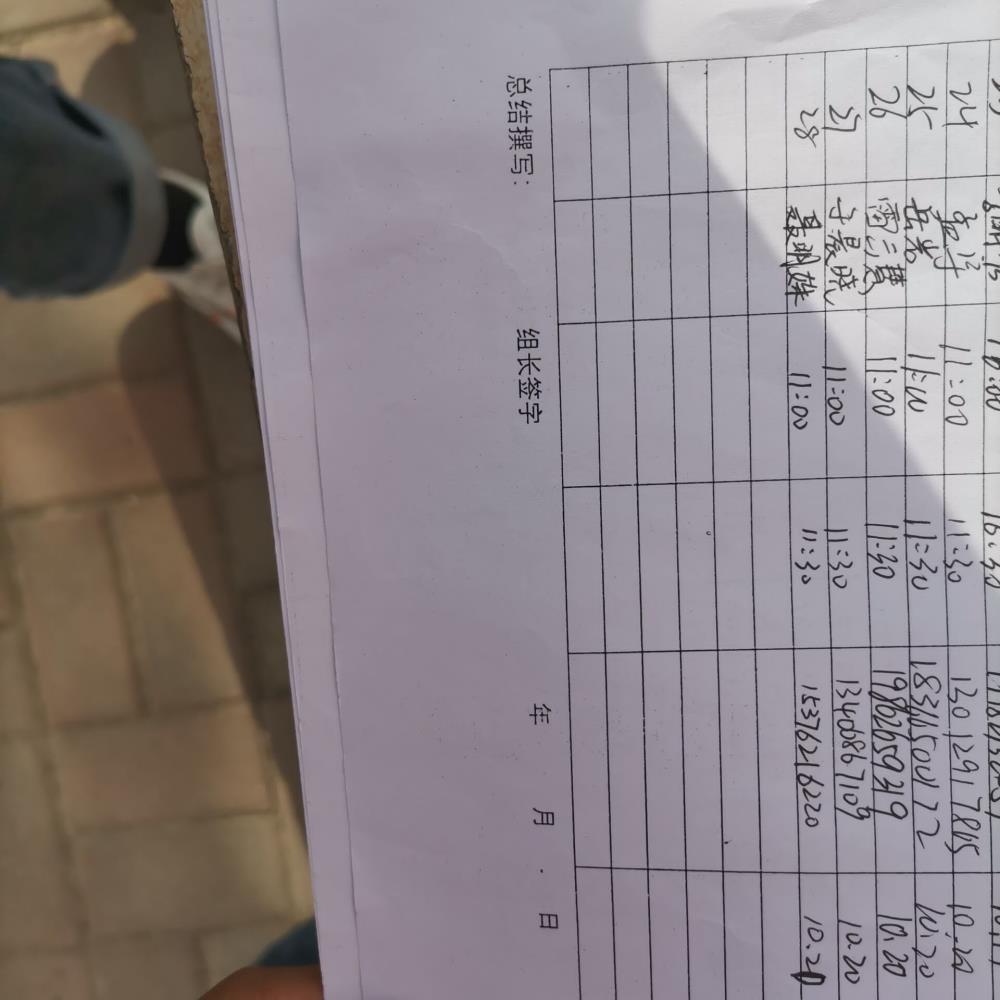 24 孟洋 11:00 11:30 13012917865 10.20
25 岳岩 11:00 11:30 18311500172 10.20
26 雷三慧 11:00 11:30 19862659319 10.20
27 于晨晓 11:00 11:30 13400867109 10.20
28 聂明姝 11:00 11:30 15376216220 10.20
总结撰写： 组长签字 年 月 日